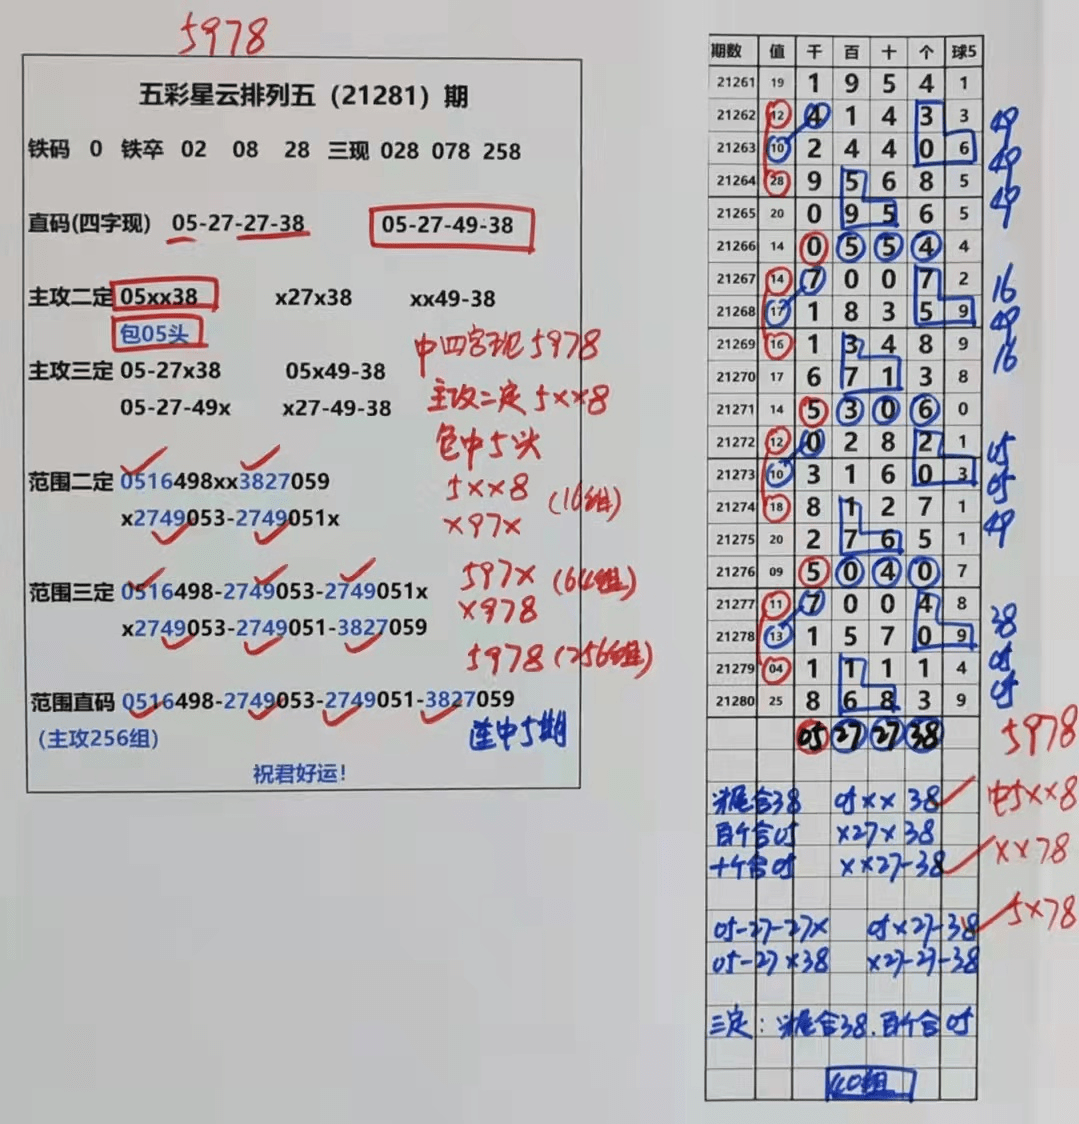 5978
五彩星云排列五（21281）期
铁码 0 铁卒 02 08 28 三现 028 078 258
直码(四字现) 05-27-27-38 05-27-49-38
主攻二定 05xx38 x27x38 xx49-38
包05头
中四字现5978
主攻三定 05-27x38 05x49-38
主攻二定5xx8
05-27-49x x27-49-38
包中5头
范围二定 0516498xx3827059
5xx8 (16组)
x2749053-2749051x
x97x
范围三定 0516498-2749053-2749051x
597x (64组)
x2749053-2749051-3827059
x978
5978 (256组)
范围直码 0516498-2749053-2749051-3827059
(主攻256组)
连中5期
祝君好运！
期数 值 千 百 十 个 球5
21261 19 1 9 5 4 1
21262 12 4 1 4 3 3 49
21263 10 2 4 4 0 6 49
21264 28 9 5 6 8 5 49
21265 20 0 9 5 6 5
21266 14 0 5 5 4 4
21267 14 7 0 0 7 2 16
21268 17 1 8 3 5 9 49
21269 16 1 3 4 8 9 16
21270 17 6 7 1 3 8
21271 14 5 3 0 6 0
21272 12 0 2 8 2 1 05
21273 10 3 1 6 0 3 05
21274 18 8 1 2 7 1 49
21275 20 2 7 6 5 1
21276 09 5 0 4 0 7
21277 11 7 0 0 4 8 38
21278 13 1 5 7 0 9
21279 04 1 1 1 1 4 05
21280 25 8 6 8 3 9 05
05 27 27 38 5978
尾合38 05xx38 中5xx8
百个合05 x27x38
十个合05 xx27-38 xx78
05-27-27x 05x27-38 5x78
05-27x38 x27-27-38
三定: 尾合38.百个合05
40组